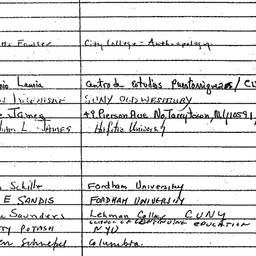 Fowler City College - Anthropology
Lamia Centro de Estudios Puertorriqueños/
SUNY OLD WESTBURY
James 49 Pierson Ave No. Tarrytown, NY 10591
L. JAMES Hofstra University
Schiller Fordham University
E SANDIS FORDHAM UNIVERSITY
Saunders Lehman College CUNY
SCHOOL OF CONTINUING EDUCATION
POTASH NYU
Schnepel Columbia